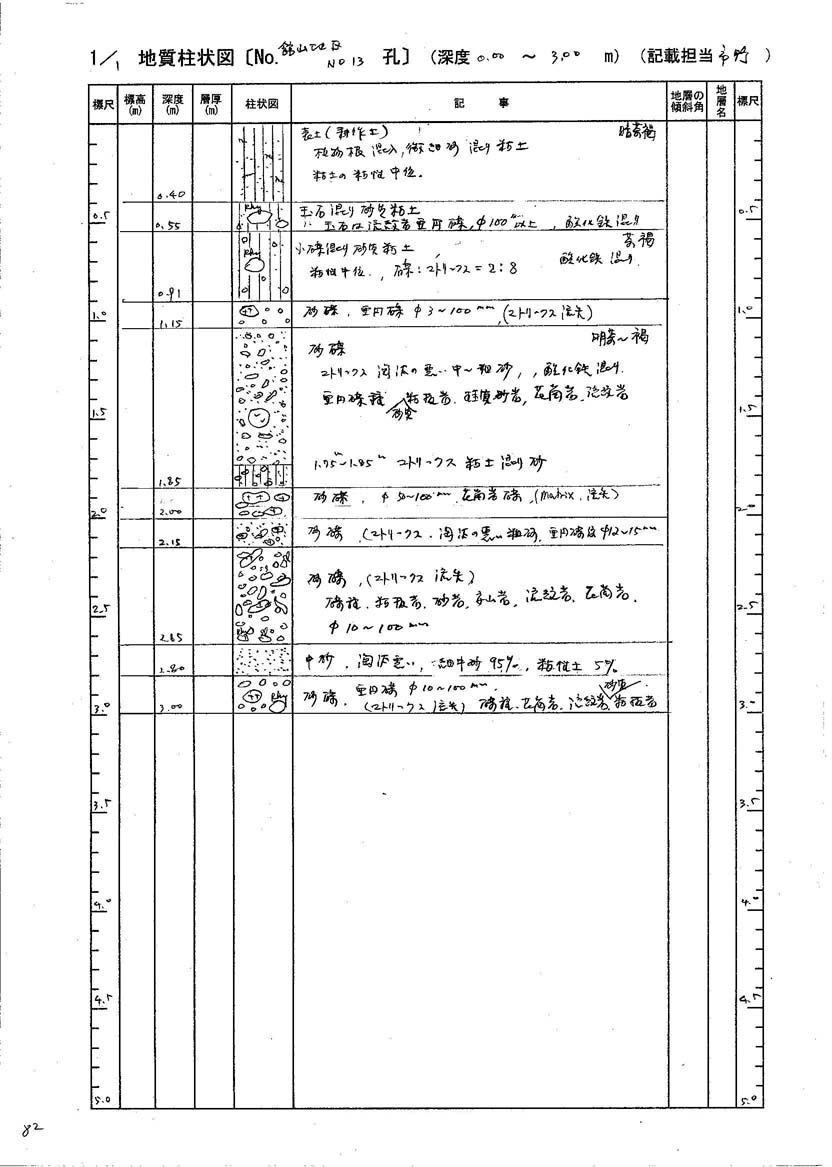 1/1 地質柱状図〔No. 舘山地区 No 13 孔〕 (深度 0.00 ~ 3.00 m) (記載担当 市野 )
標尺 標高(m) 深度(m) 層厚(m) 柱状図 記事 地層の傾斜角 地層名 標尺
表土(耕作土) 暗茶褐
植物根混入, 微細砂混り粘土
粘土の粘性中位。
0.40
0.5 玉石混り砂質粘土 0.5
Rhy 玉石は流紋岩亜円礫, φ100mm以上, 酸化鉄混り
0.55
小礫混り砂質粘土 茶褐
Rhy 粘性中位, 礫:マトリックス=2:8 酸化鉄混り
0.91
1.0 砂礫, 亜円礫 φ3~100mm, (マトリックス流失) 1.0
1.15
砂礫 明茶~褐
マトリックス 淘汰の悪い中~粗砂, 酸化鉄混り
亜円礫種 粘板岩, 硅質砂岩, 花崗岩, 流紋岩
砂質
1.5 1.5
1.75m~1.85m マトリックス 粘土混り砂
1.85
砂礫, φ50~100mm 花崗岩礫, (Matrix, 流失)
2.0 2.00 2.0
2.15 砂礫, (マトリックス・淘汰の悪い粗砂, 亜円礫はφ12~15mm
砂礫, (マトリックス流失)
礫種, 粘板岩, 砂岩, 安山岩, 流紋岩, 花崗岩,
2.5 φ10~100mm 2.5
2.65
2.80 中砂, 淘汰悪い, 細中砂95%, 粘性土5%
砂礫, 亜円礫 φ10~100mm. 砂質
3.0 3.00 Rhy (マトリックス流失) 礫種, 花崗岩, 流紋岩, 粘板岩 3.0
3.5 3.5
4.0 4.0
4.5 4.5
5.0 5.0
82